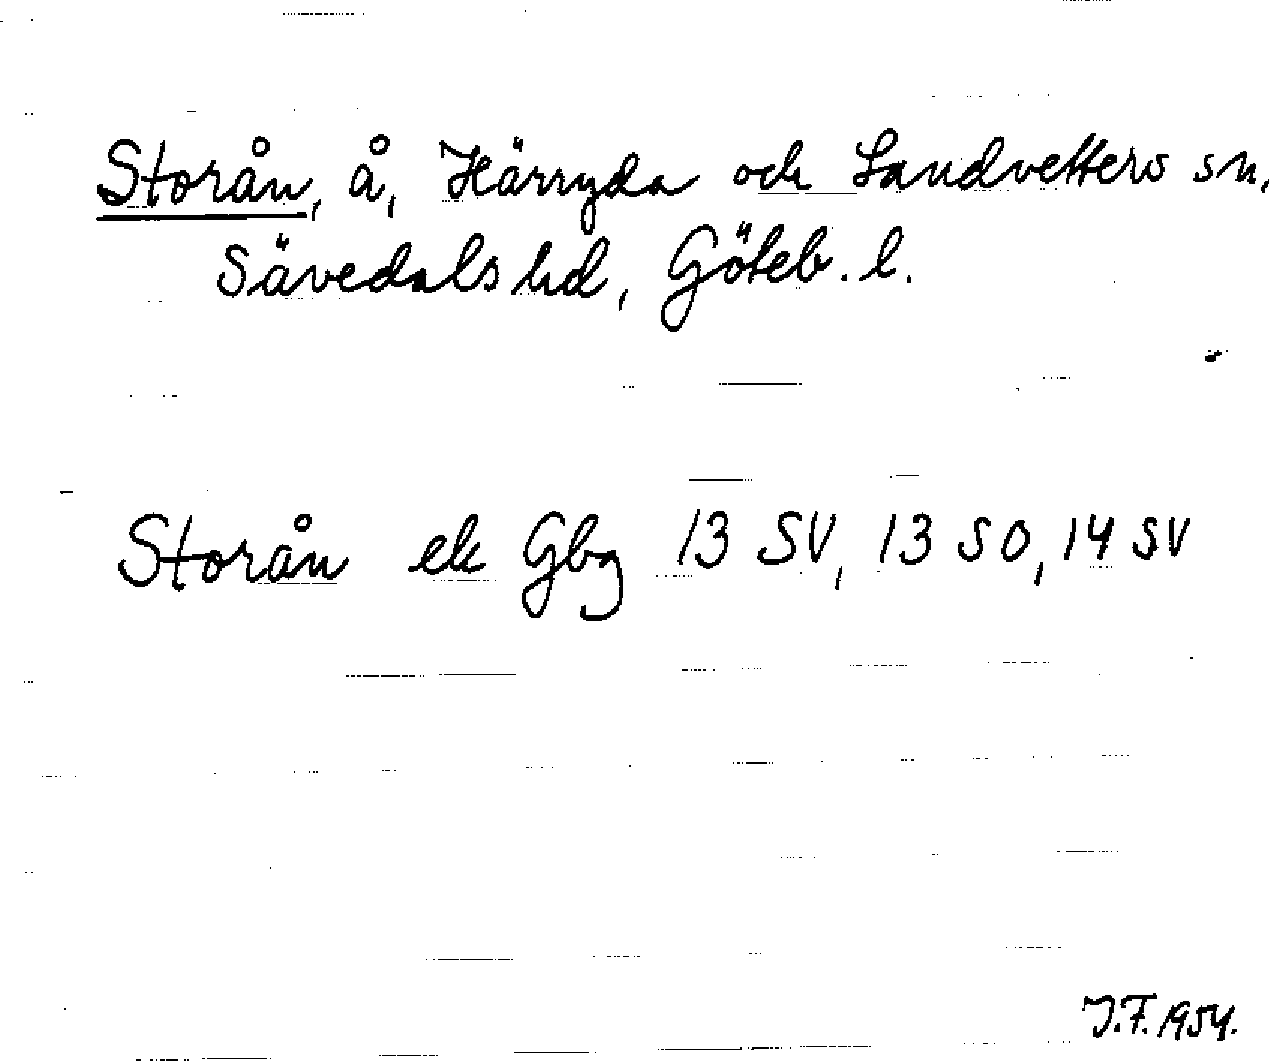 Storån, å, Härryda och Landvetters sn,
Sävedals hd, Göteb. l.
Storån ek Gbg 13 SV, 13 SO, 14 SV
J.F. 1954.